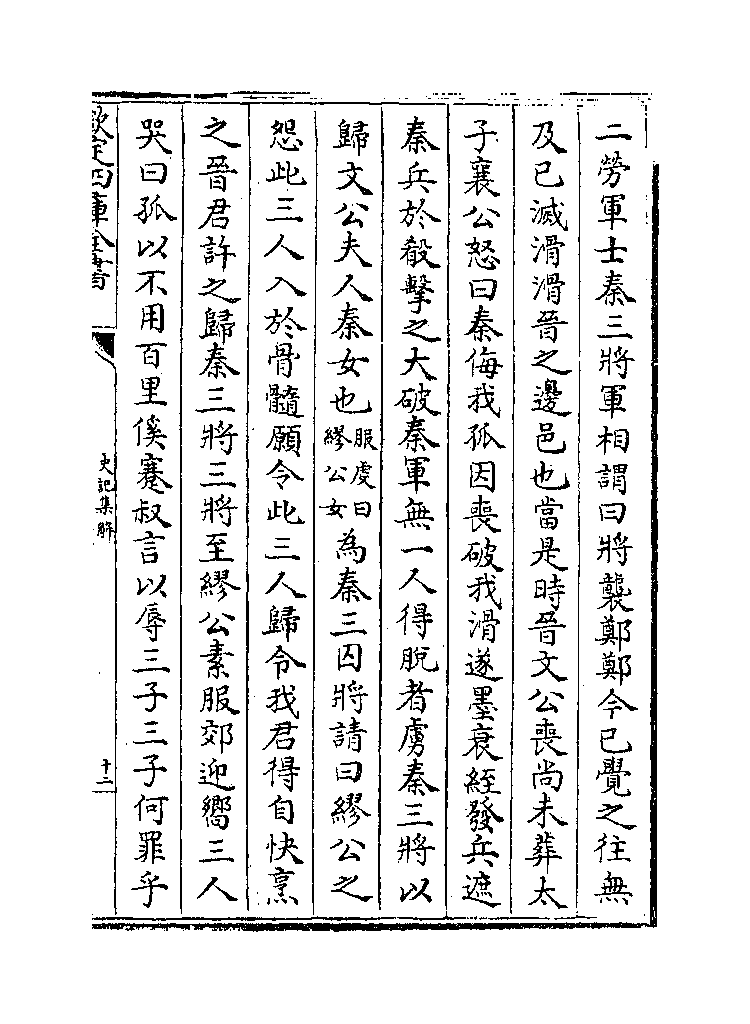 二勞軍士秦三將軍相謂曰將襲鄭鄭今已覺之往無
及已滅滑滑晉之邊邑也當是時晉文公喪尚未葬太
子襄公怒曰秦侮我孤因喪破我滑遂墨衰絰發兵遮
秦兵於殽擊之大破秦軍無一人得脫者虜秦三將以
歸文公夫人秦女也服虔曰繆公女為秦三囚將請曰繆公之
怨此三人入於骨髓願令此三人歸令我君得自快烹
之晉君許之歸秦三將三將至繆公素服郊迎嚮三人
哭曰孤以不用百里傒蹇叔言以辱三子三子何罪乎
欽定四庫全書
史記集解
十二